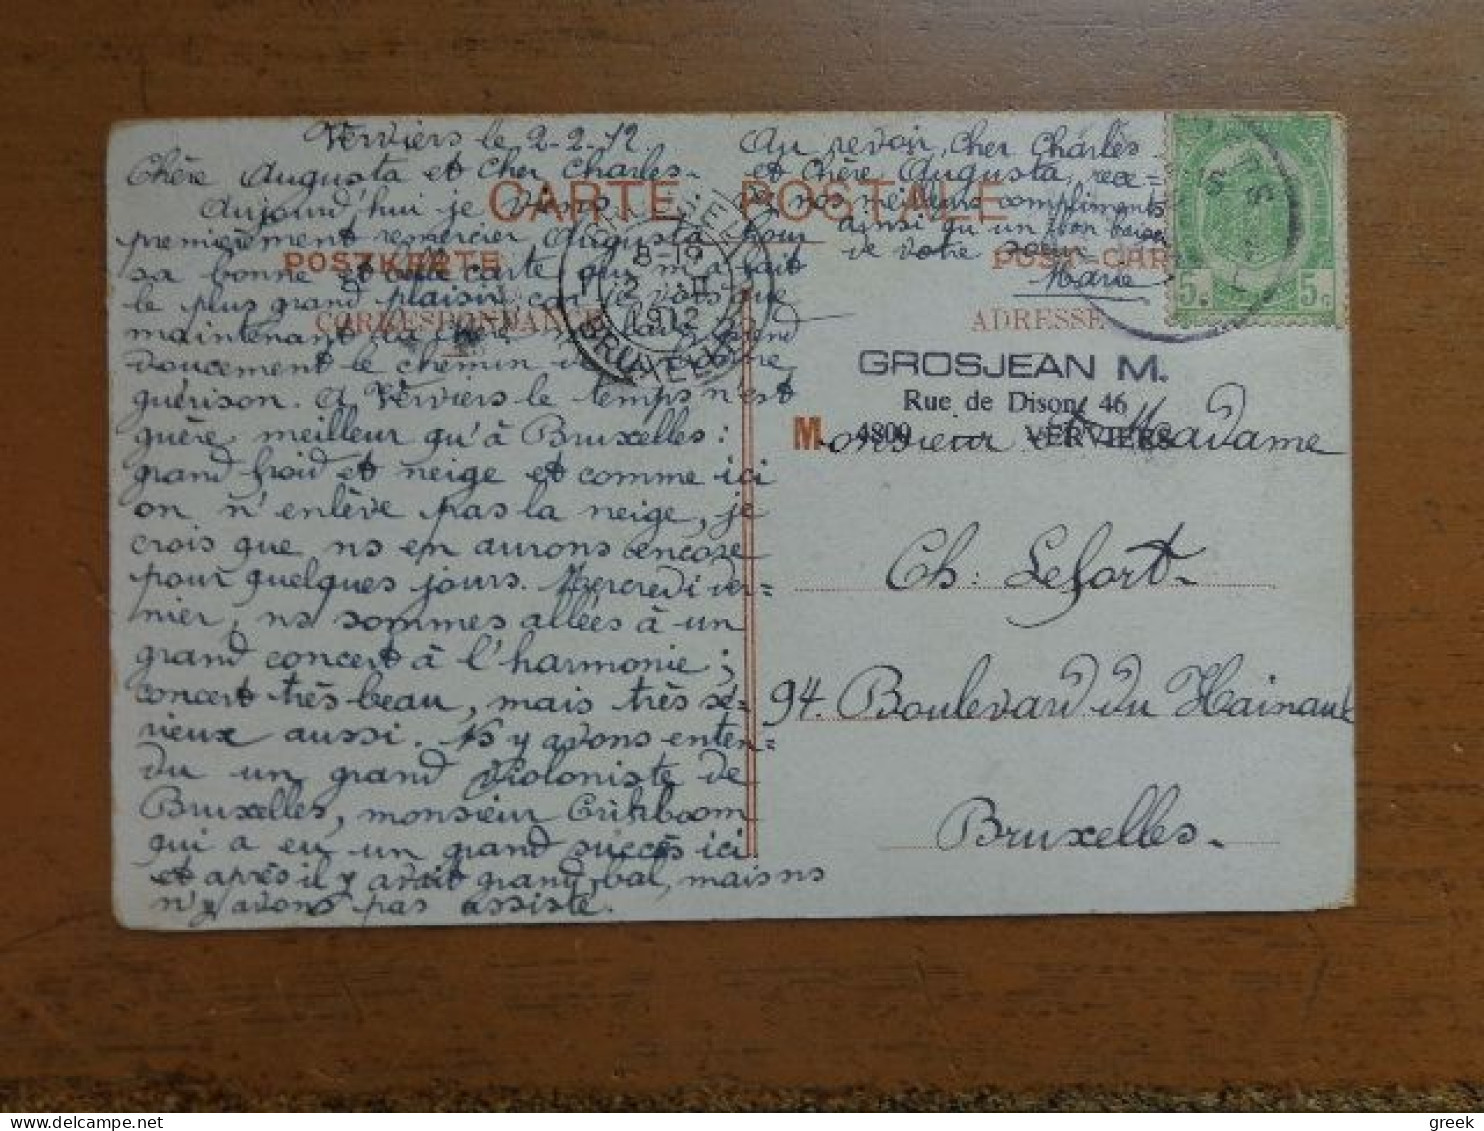 Verviers le 2-2-12
Chère Augusta et Cher Charles.
Aujourd'hui je viens
premièrement remercier Augusta pour
sa bonne et carte qui m'a fait
le plus grand plaisir, car je vois que
maintenant
doucement le chemin de la
guérison. A Verviers le temps n'est
guère meilleur qu'à Bruxelles:
grand froid et neige et comme ici
on n'enlève pas la neige, je
crois que ns en aurons encore
pour quelques jours. Mercredi der=
nier, ns sommes allées à un
grand concert à l'harmonie;
concert très beau, mais très sé-
rieux aussi. Ns y avons enten=
du un grand violoniste de
Bruxelles, monsieur Crikboom
qui a eu un grand succès ici
et après il y avait grand bal, mais ns
n'y avons pas assiste.
Au revoir, Cher Charles
et Chère Augusta, rece=
vez nos meilleurs compliments
ainsi qu'un bon baiser
de votre
Marie
CARTE POSTALE
POSTKARTE
POST-CAR
CORRESPONDANCE
ADRESSE
8-19
2 II
1912
BRUXELLES
5c 5c
GROSJEAN M.
Rue de Dison, 46
4800 VERVIERS
M
Monsieur & Madame
Ch: Lefort-
94. Boulevard du Hainaut
Bruxelles-
greek